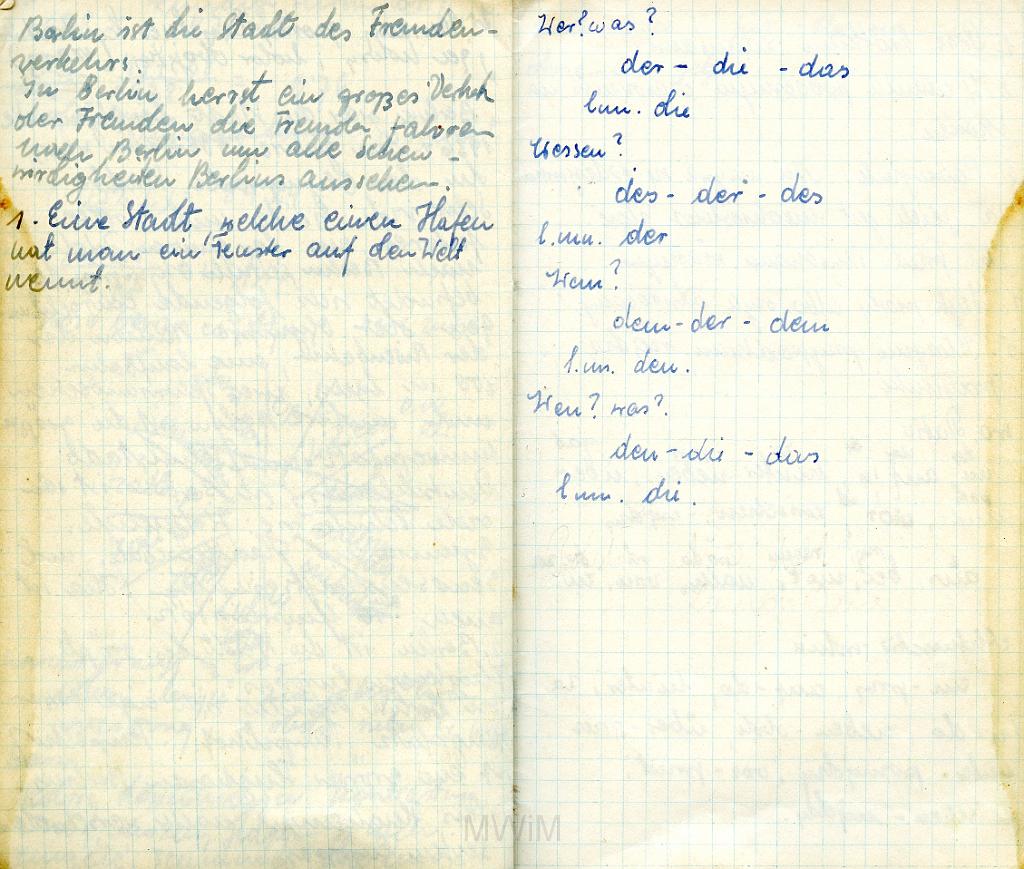 Berlin ist die Stadt des Fremden-
verkehrs.
In Berlin herrst ein großes Verkeh
der Fremden die Fremden fahren
nach Berlin um alle Sehen-
wirdigkeiten Berlins aussehen.
1. Eine Stadt, welche einen Hafen
hat man ein Fenster auf den Welt
nennt.
Wer? was?
der - die - das
l.mn. die
Wessen?
des - der - des
l.mn. der
Wem?
dem - der - dem
l.m. den.
Wen? was?
den - die - das
l.mn. die.
MWiM